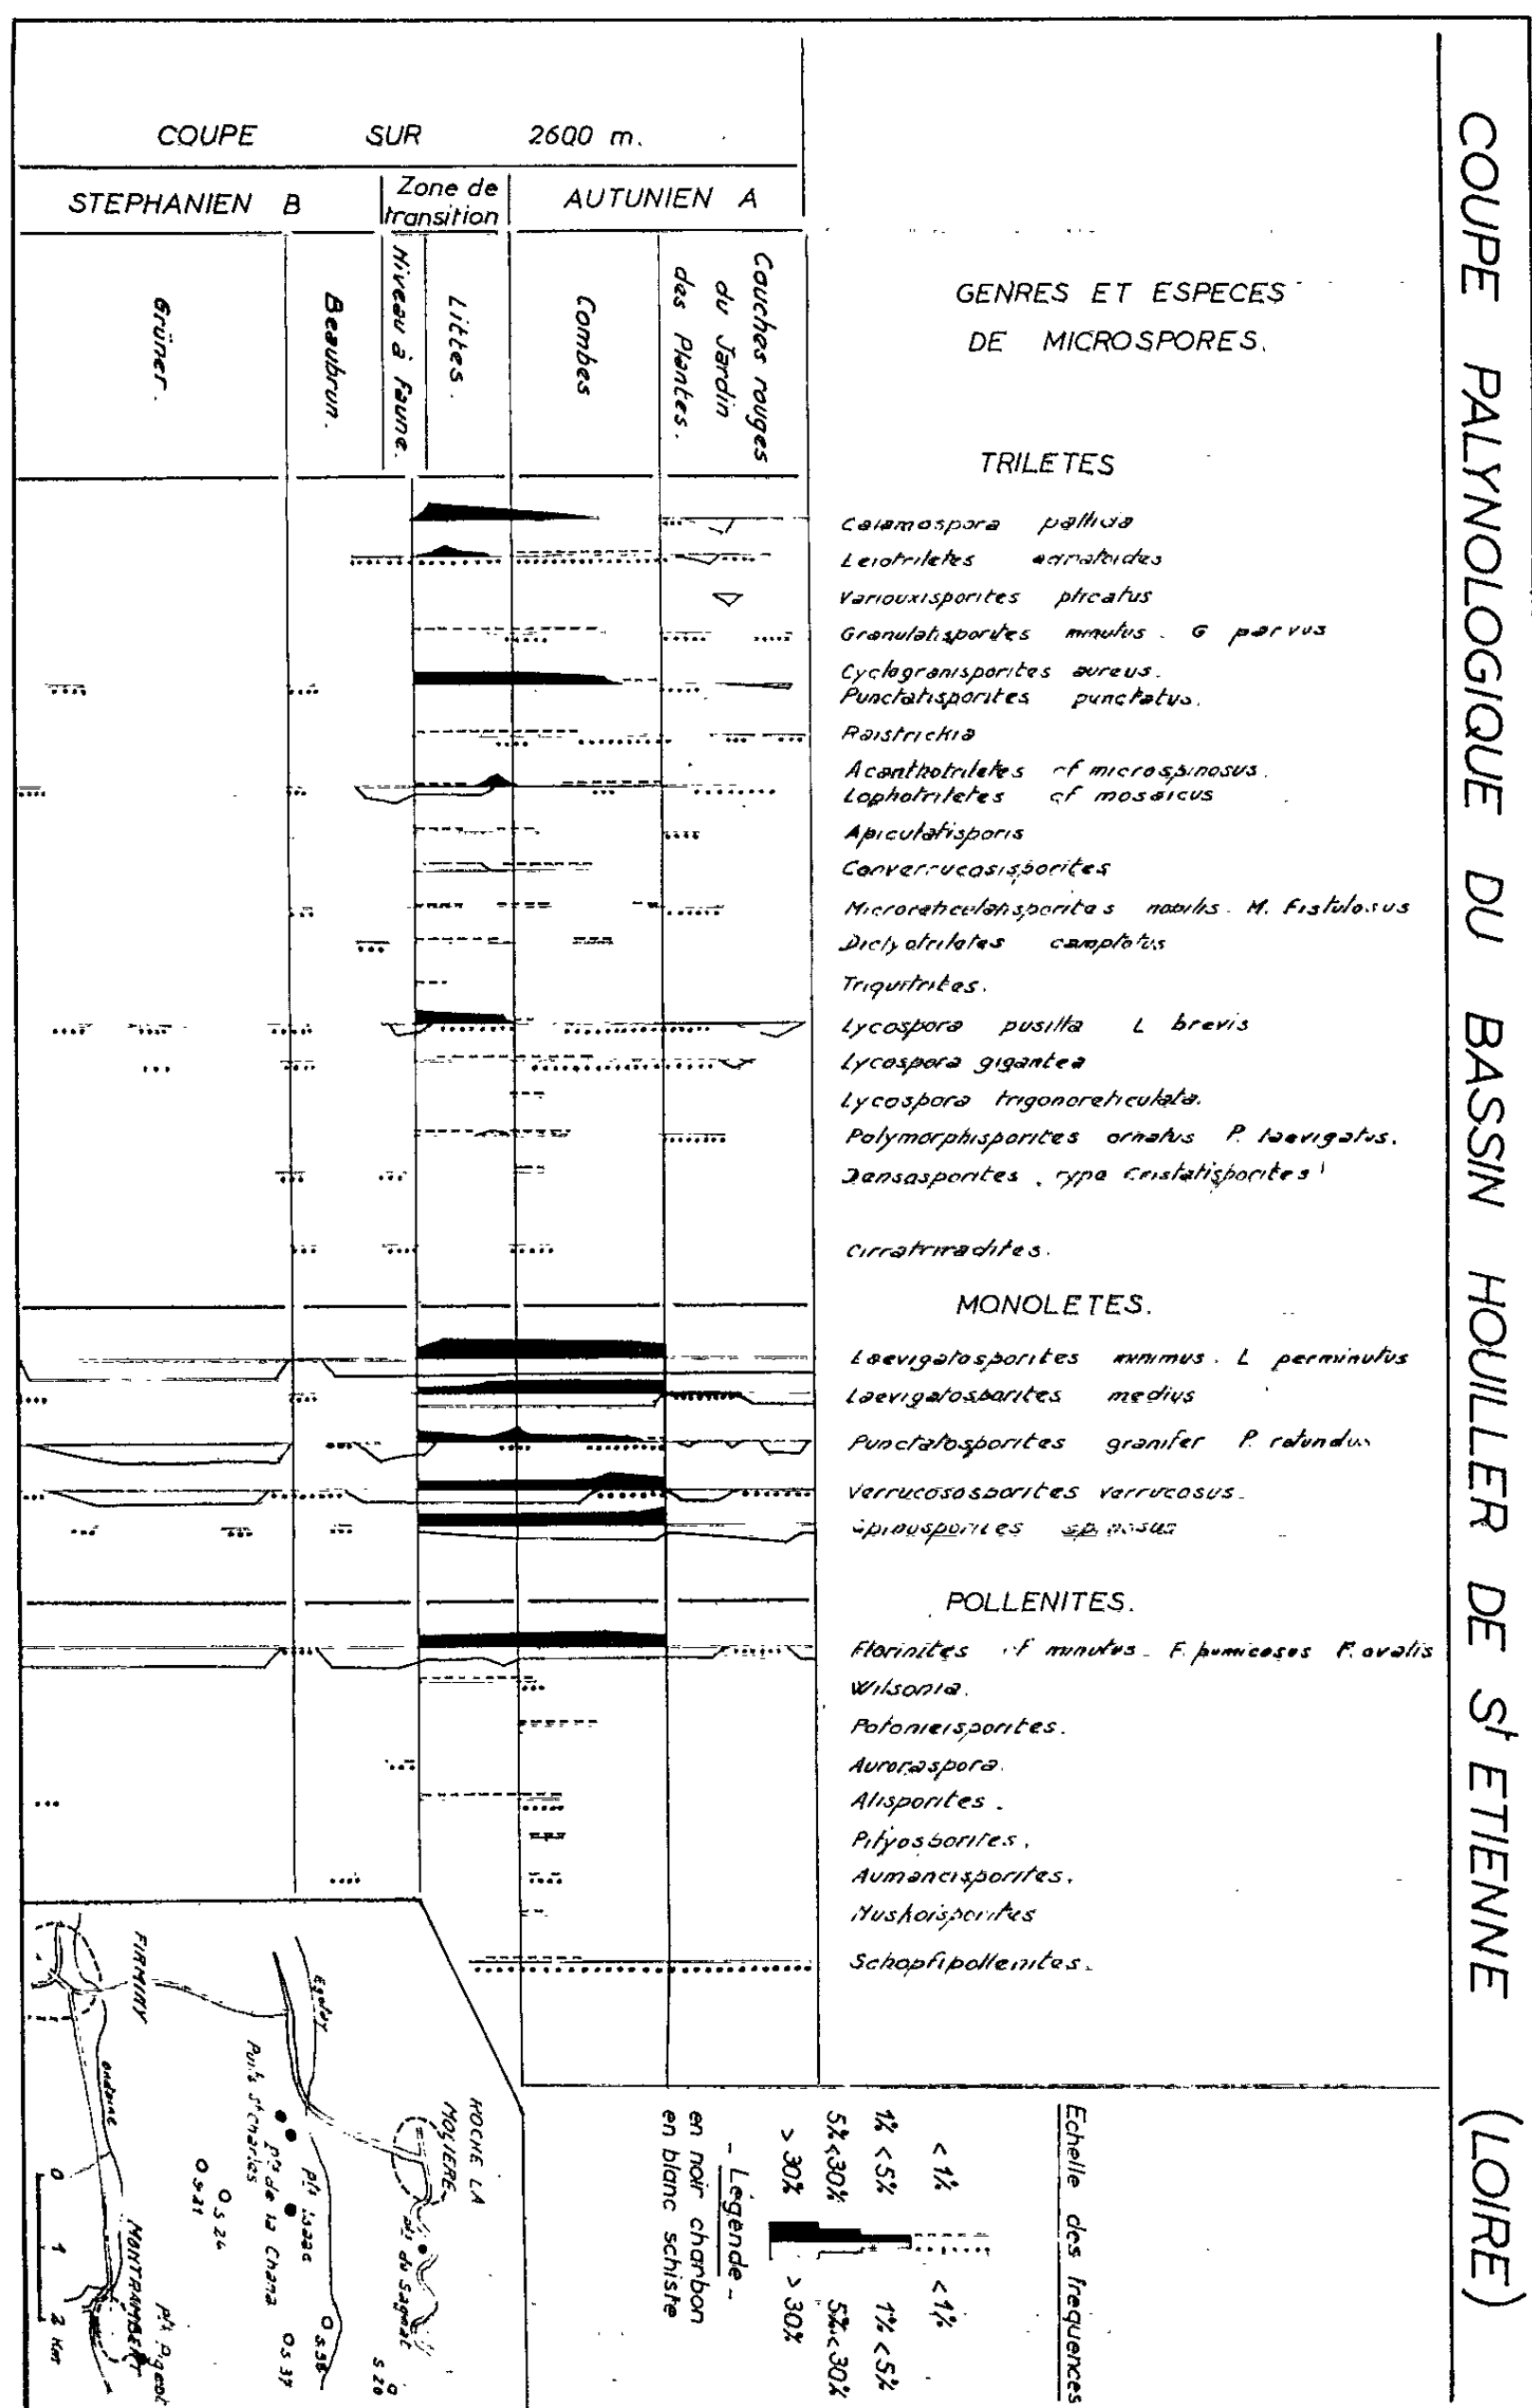 COUPE PALYNOLOGIQUE DU BASSIN HOUILLER DE St ETIENNE (LOIRE)
COUPE SUR 2600 m.
STEPHANIEN B
Zone de
transition
AUTUNIEN A
Grüner.
Beaubrun.
Niveau à Faune.
Littes.
Combes
Couches rouges
du Jardin
des Plantes.
GENRES ET ESPECES
DE MICROSPORES.
TRILETES
Calamospora pallida
Leiotriletes adnatoides
Variouxisporites plicatus
Granulatisporites minutus. G parvus
Cyclogranisporites aureus.
Punctatisporites punctatus.
Raistrickia
Acanthotriletes cf microspinosus.
Lophotriletes cf mosaicus
Apiculatisporis
Converrucosisporites
Microreticulatisporites nobilis. M. Fistulosus
Dictyotriletes camptotus
Triquitrites.
Lycospora pusilla L brevis
Lycospora gigantea
Lycospora trigonoreticulata.
Polymorphisporites ornatus P. laevigatus.
Densosporites, type Cristatisporites
Cirratriradites.
MONOLETES.
Laevigatosporites minimus. L perminutus
Laevigatosporites medius
Punctatosporites granifer P. rotundus
Verrucososporites verrucosus.
Spinosporites spinosus
POLLENITES.
Florinites cf minutus. F. pumicosus F. ovalis
Wilsonia.
Potonieisporites.
Auroraspora.
Alisporites.
Pityosporites.
Aumancisporites.
Nuskoisporites
Schopfipollenites.
Echelle des frequences
< 1% < 1%
1% < 5% 1% < 5%
5% < 30% 5% < 30%
> 30% > 30%
- Légende -
en noir charbon
en blanc schiste
FIRMINY
Egotay
ondaine
Puits St Charles
Pts de la Chana
Pts Isaac
ROCHE LA
MOLIERE
Pts du Sagnat
S 21
S 24
S 37
S 38
S 20
MONTRAMBERT
Pts Pigeot
0 1 2 Km